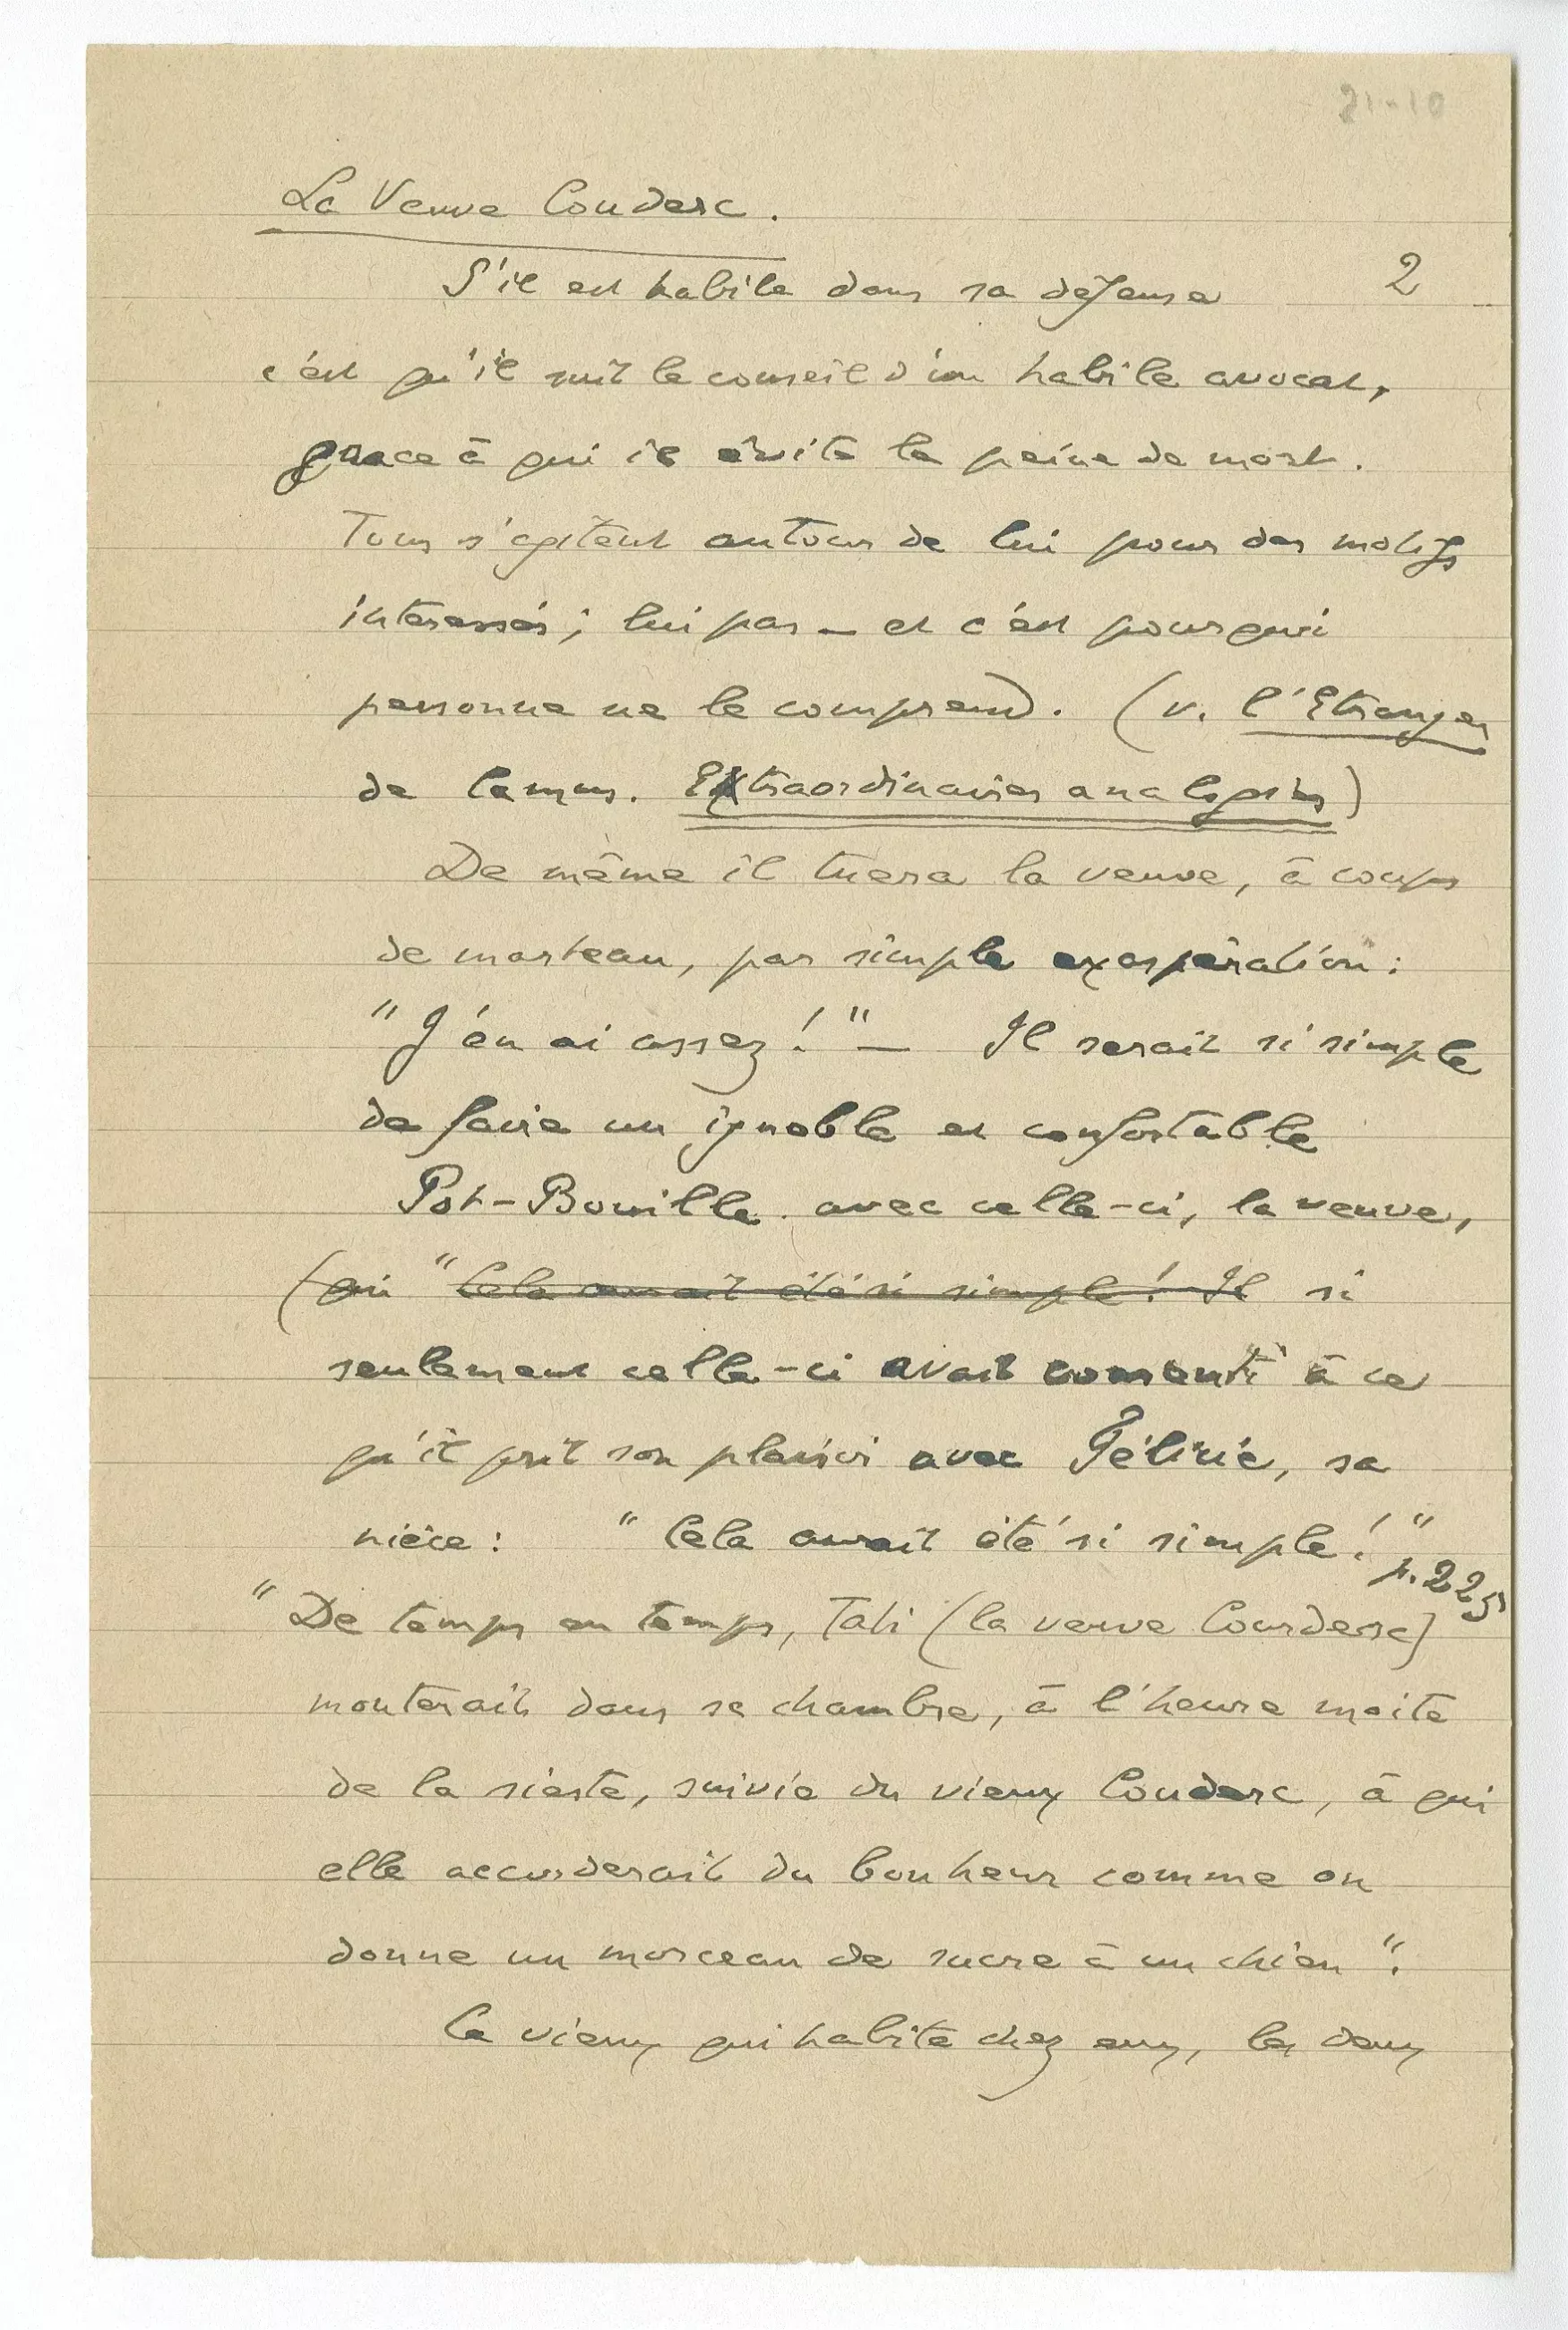 21-10
La Veuve Couderc.
S'il est habile dans sa défense 2
c'est qu'il suit le conseil d'un habile avocat,
grace à qui il évite la peine de mort.
Tous s'agitent autour de lui pour des motifs
intéressés ; lui pas _ et c'est pourquoi
personne ne le comprend. (v. l'Etranger
de Camus. Extraordinaires analogies)
De même il tuera la veuve, à coups
de marteau, par simple exaspération :
"J'en ai assez ! " _ Il serait si simple
de faire un ignoble et confortable
Pot-Bouille avec celle-ci, la veuve,
(qui " Cela aurait été si simple ! Il si
seulement celle-ci avait consenti à ce
qu'il prît son plaisir avec Félicie, sa
nièce : " Cela aurait été si simple ! "
p. 225
" De temps en temps, Tati (la veuve Courderc)
monterait dans sa chambre, à l'heure moite
de la sieste, suivie du vieux Couderc, à qui
elle accorderait du bonheur comme on
donne un morceau de sucre à un chien ".
Ce vieux qui habite chez eux, les deux